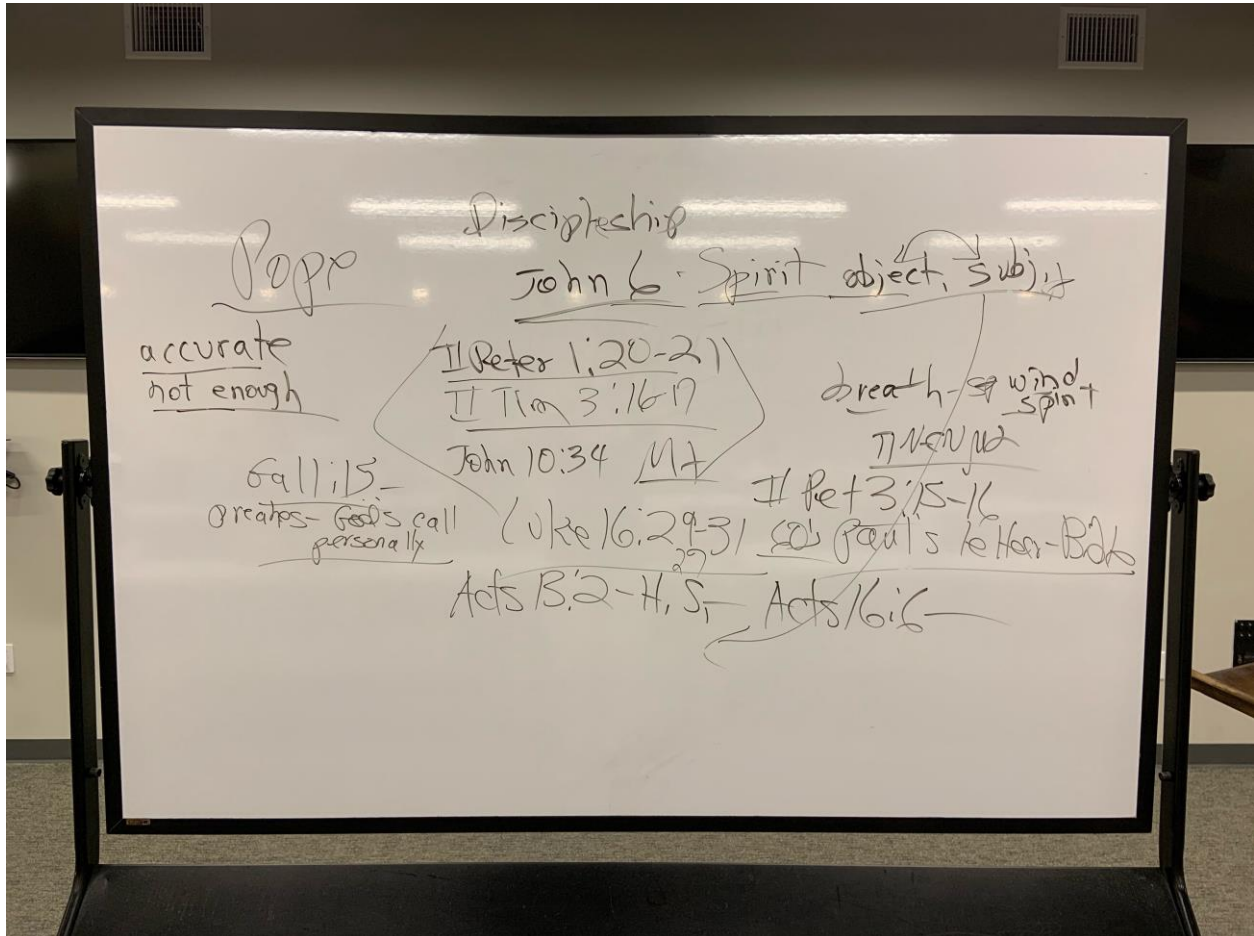 Discipleship
Pope
John 6 - Spirit object, subj.
accurate
not enough
II Peter 1:20-21
II Tim 3:16-17
John 10:34 Mt
breath - wind
spirit
πνευμα
Gal 1:15 -
God's call
personally
II Pet 3:15-16
Luke 16:29-31
27
Paul's letter -
Acts 13:2 - H. S. - Acts 16:6 -